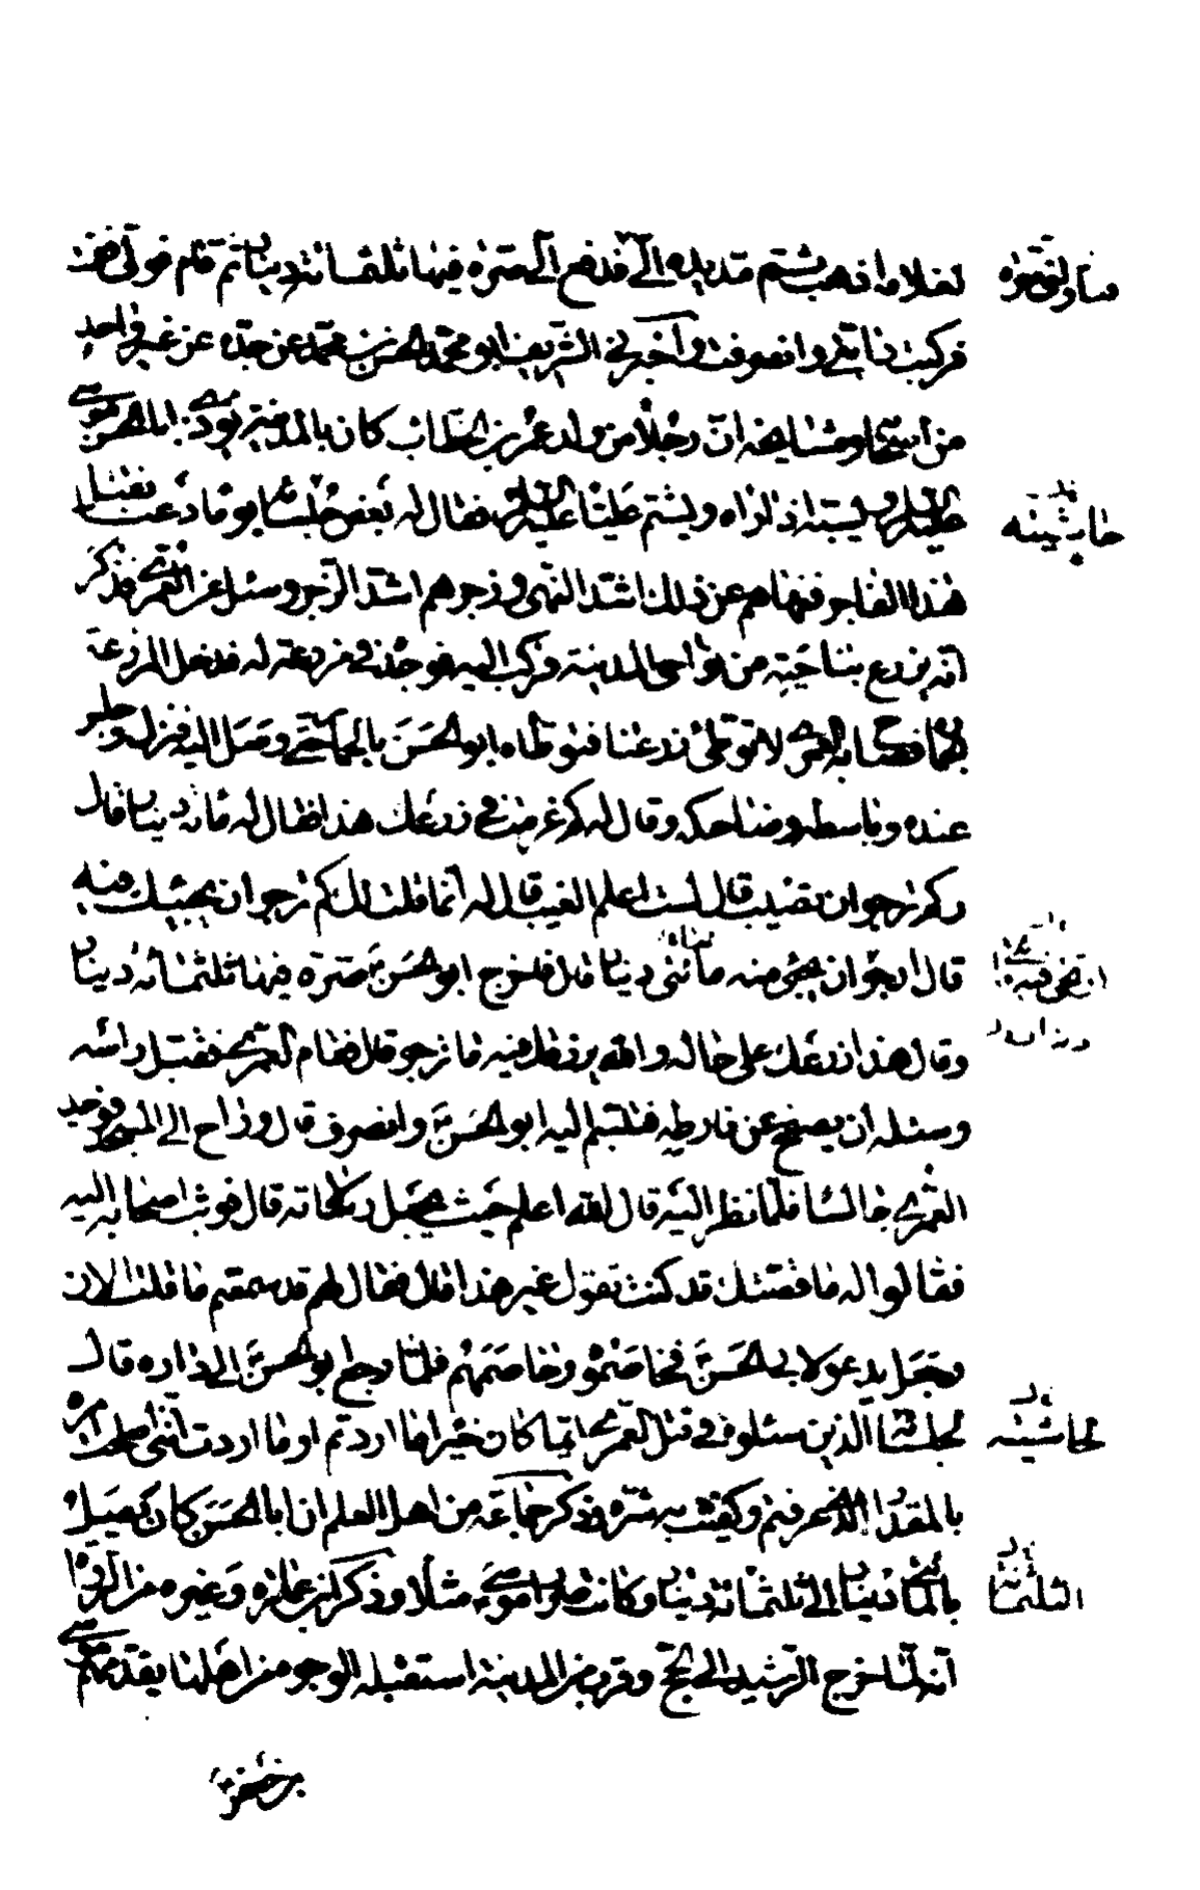 لغلامه اذهب ثم مد يده الي فدفع الي صرة فيها ثلثمائة دينار ثم قام فولى فقمت
فركبت دابتي وانصرفت واخبرني الشريف ابو محمد الحسن بن محمد عن جده عن غير واحد
من اصحابه ومشايخه ان رجلا من ولد عمر بن الخطاب كان بالمدينة يؤذي ابا الحسن موسى
عليه السلام ويسبه اذا راه ويشتم عليا عليه السلام فقال له بعض جلسائه يوما دعنا نقتل
هذا الفاجر فنهاهم عن ذلك اشد النهى وزجرهم اشد الزجر وسئل عن العمري فذكر
انه يزرع بناحية من نواحي المدينة فركب اليه فوجده في مزرعة له فدخل المزرعة
بحماره فصاح به العمري لا توطئ زرعنا فتوطاه ابو الحسن بالحمار حتى وصل اليه فنزل وجلس
عنده وباسطه وضاحكه وقال له كم غرمت في زرعك هذا فقال له مائة دينار قال
وكم ترجو ان تصيب قال لست اعلم الغيب قال له انما قلت لك كم ترجو ان يجيئك فيه
قال ارجو ان يجئ منه مائتي دينار قال فاخرج ابو الحسن ع صرة فيها ثلثمائة دينار
وقال هذا زرعك على حاله والله يرزقك فيه ما ترجو قال فقام العمري فقبل راسه
وسئله ان يصفح عن فارطه فتبسم اليه ابو الحسن ع وانصرف قال وراح الى المسجد فوجد
العمري جالسا فلما نظر اليه قال الله اعلم حيث يجعل رسالاته قال فوثب اصحابه اليه
فقالوا له ما قصتك قد كنت تقول غير هذا قال فقال لهم قد سمعتم ما قلت الان
وجعل يدعو لابي الحسن ع فخاصموه وخاصمهم فلما رجع ابو الحسن ع الى داره قال
لجلسائه الذين سئلوه في قتل العمري ايما كان خيرا ما اردتم او ما اردت انني اصلحت امره
بالمقدار الذي عرفتم وكفيت به شره وذكر جماعة من اهل العلم ان ابا الحسن كان يصل
بالمائتي دينار الى ثلثمائة دينار وكانت صرار موسى ع مثلا وذكر ابن عمار وغيره من الرواة
انه لما خرج الرشيد الى الحج وقرب من المدينة استقبله الوجوه من اهلها يقدمهم موسى
بن جعفر ع
حاشيته
لحاشيته
الثلثمائة